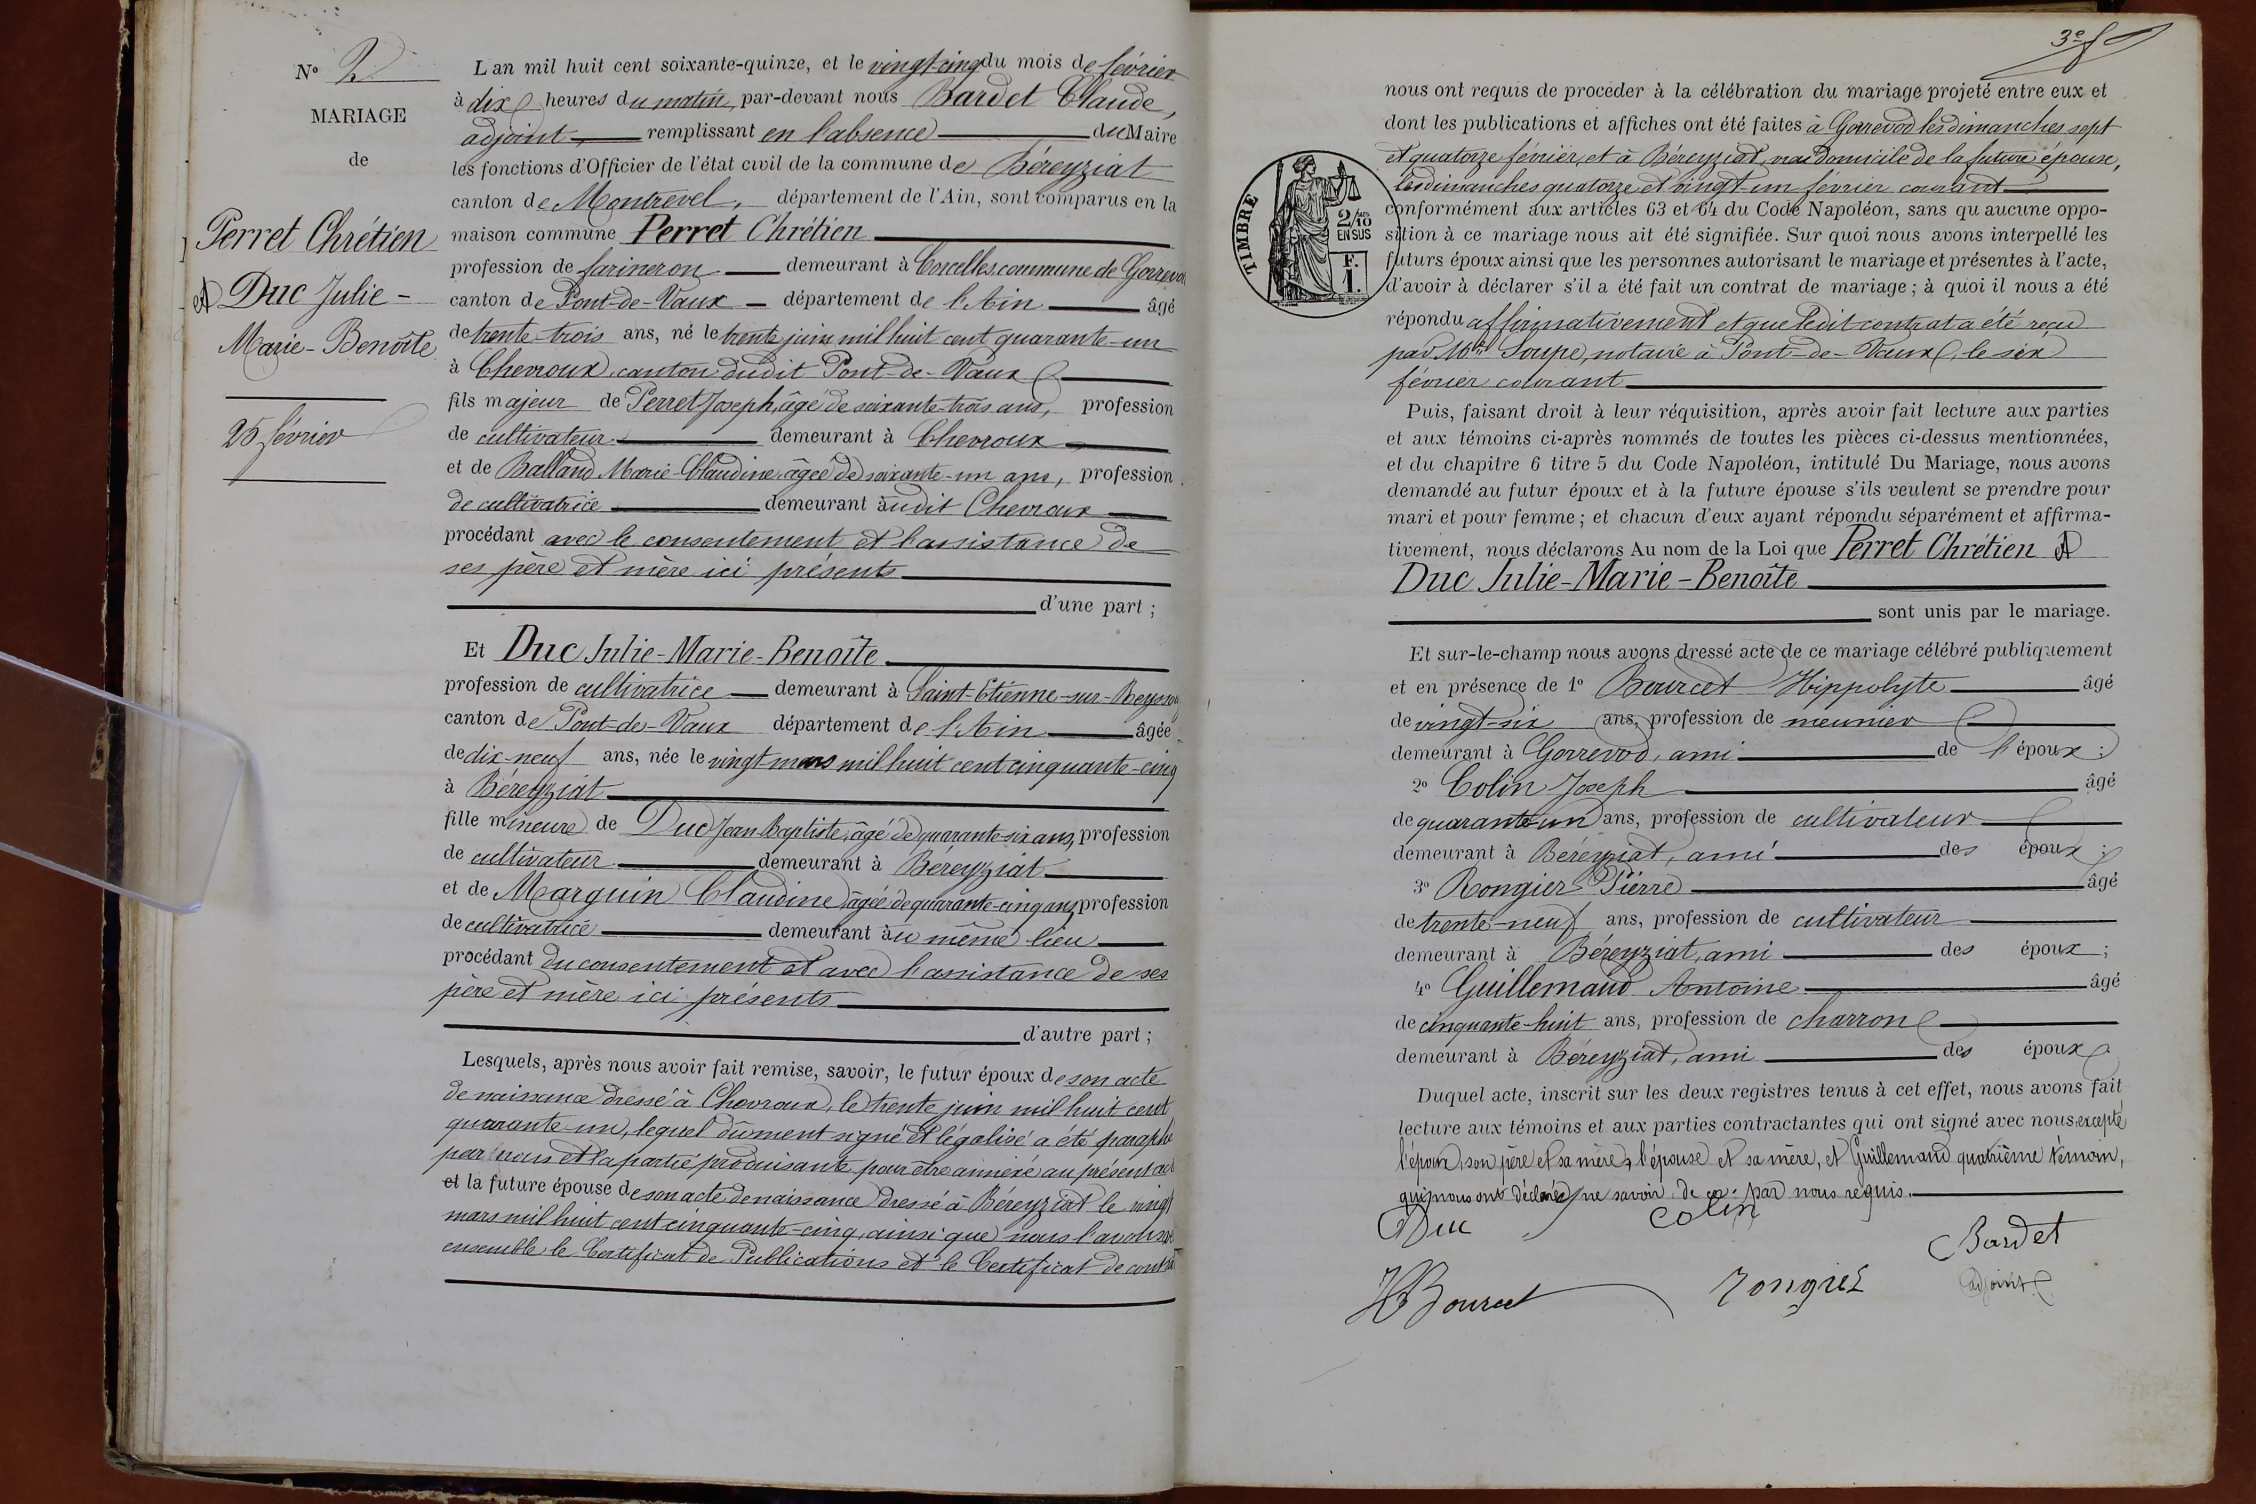 N° 2
MARIAGE
de
Perret Chrétien
et Duc Julie-
Marie-Benoîte
25 février
L'an mil huit cent soixante-quinze, et le vingt-cinq du mois de février
à dix heures du matin, par-devant nous Bardet Claude,
adjoint, remplissant en l'absence du Maire
les fonctions d'Officier de l'état civil de la commune de Béreyziat
canton de Montrevel, département de l'Ain, sont comparus en la
maison commune Perret Chrétien
profession de farineron demeurant à Corcelles, commune de Gorrevod
canton de Pont-de-Vaux département de l'Ain âgé
de trente-trois ans, né le trente juin mil huit cent quarante-un
à Chevroux, canton dudit Pont-de-Vaux
fils majeur de Perret Joseph, âgé de soixante-trois ans, profession
de cultivateur demeurant à Chevroux
et de Balland Marie-Claudine, âgée de soixante-un ans, profession
de cultivatrice demeurant audit Chevroux
procédant avec le consentement et l'assistance de
ses père et mère ici présents
d'une part ;
Et Duc Julie-Marie-Benoîte
profession de cultivatrice demeurant à Saint-Etienne-sur-Reyssouze
canton de Pont-de-Vaux département de l'Ain âgée
de dix-neuf ans, née le vingt mars mil huit cent cinquante-cinq
à Béreyziat
fille mineure de Duc Jean Baptiste, âgé de quarante-six ans, profession
de cultivateur demeurant à Béreyziat
et de Marguin Claudine, âgée de quarante-cinq ans, profession
de cultivatrice demeurant au même lieu
procédant du consentement et avec l'assistance de ses
père et mère ici présents
d'autre part ;
Lesquels, après nous avoir fait remise, savoir, le futur époux de son acte
de naissance dressé à Chevroux, le trente juin mil huit cent
quarante-un, lequel dûment signé et légalisé a été paraphé
par nous et la partie produisante, pour être annexé au présent acte
et la future épouse de son acte de naissance dressé à Béreyziat le vingt
mars mil huit cent cinquante-cinq, ainsi que nous l'avons vu
ensemble le Certificat de Publications et le Certificat de contrat
3e f
nous ont requis de procéder à la célébration du mariage projeté entre eux et
dont les publications et affiches ont été faites à Gorrevod les dimanches sept
et quatorze février, et à Béreyziat, vrai domicile de la future épouse,
les dimanches quatorze et vingt-un février courant
TIMBRE
2/10
EN SUS
F.
1.
conformément aux articles 63 et 64 du Code Napoléon, sans qu'aucune oppo-
sition à ce mariage nous ait été signifiée. Sur quoi nous avons interpellé les
futurs époux ainsi que les personnes autorisant le mariage et présentes à l'acte,
d'avoir à déclarer s'il a été fait un contrat de mariage ; à quoi il nous a été
répondu affirmativement et que ledit contrat a été reçu
par Me Soupe, notaire à Pont-de-Vaux, le six
février courant
Puis, faisant droit à leur réquisition, après avoir fait lecture aux parties
et aux témoins ci-après nommés de toutes les pièces ci-dessus mentionnées,
et du chapitre 6 titre 5 du Code Napoléon, intitulé Du Mariage, nous avons
demandé au futur époux et à la future épouse s'ils veulent se prendre pour
mari et pour femme ; et chacun d'eux ayant répondu séparément et affirma-
tivement, nous déclarons Au nom de la Loi que Perret Chrétien et
Duc Julie-Marie-Benoîte
sont unis par le mariage.
Et sur-le-champ nous avons dressé acte de ce mariage célébré publiquement
et en présence de 1° Bourcet Hippolyte âgé
de vingt-six ans, profession de meunier
demeurant à Gorrevod, ami de l'époux ;
2° Colin Joseph âgé
de quarante-un ans, profession de cultivateur
demeurant à Béreyziat, ami des époux ;
3° Rongier Pierre âgé
de trente-neuf ans, profession de cultivateur
demeurant à Béreyziat, ami des époux ;
4° Guillemaud Antoine âgé
de cinquante-huit ans, profession de charron
demeurant à Béreyziat, ami des époux
Duquel acte, inscrit sur les deux registres tenus à cet effet, nous avons fait
lecture aux témoins et aux parties contractantes qui ont signé avec nous, excepté
l'époux, son père et sa mère, l'épouse et sa mère, et Guillemaud quatrième témoin,
qui nous ont déclaré ne savoir, de ce par nous requis.
Duc
Colin
Bardet
adjoint
H Bourcet
rongier